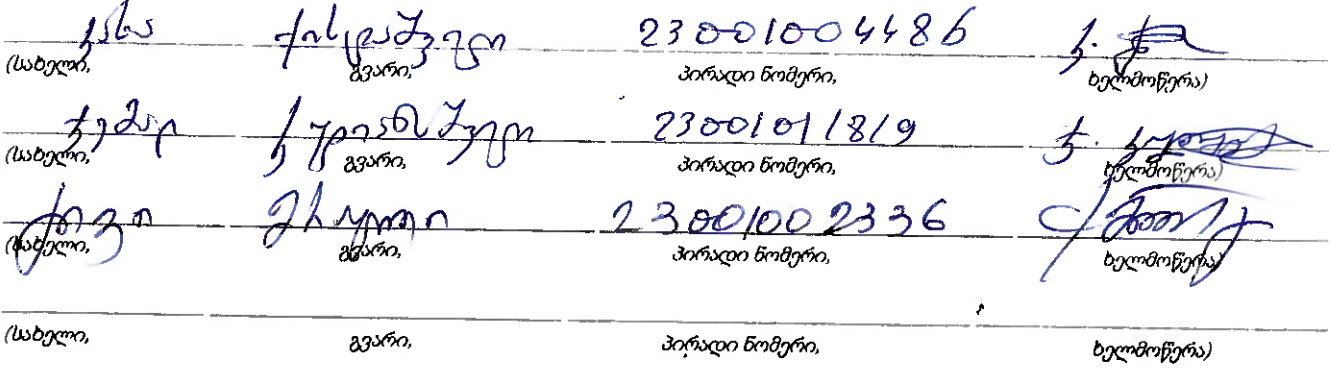 კახა ქისლაშვილი 23001004486 კ. ქ
(სახელი, გვარი, პირადი ნომერი, ხელმოწერა)
ჯემალ 23001011819
(სახელი, გვარი, პირადი ნომერი, ხელმოწერა)
23001002336
(სახელი, გვარი, პირადი ნომერი, ხელმოწერა)
(სახელი, გვარი, პირადი ნომერი, ხელმოწერა)